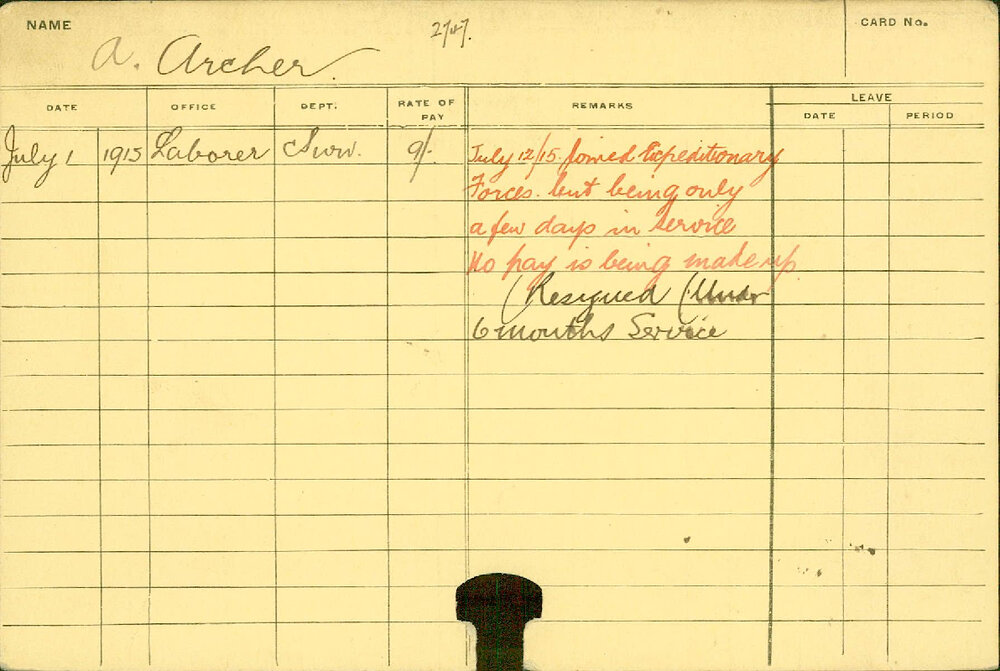 NAME
2747.
CARD No.
A. Archer.
DATE OFFICE DEPT. RATE OF PAY REMARKS LEAVE
DATE PERIOD
July 1 1915 Laborer 9/- July 12/15. Joined Expeditionary
Forces. but being only
a few days in service
No pay is being made up
(Resigned (Under
6 months Service